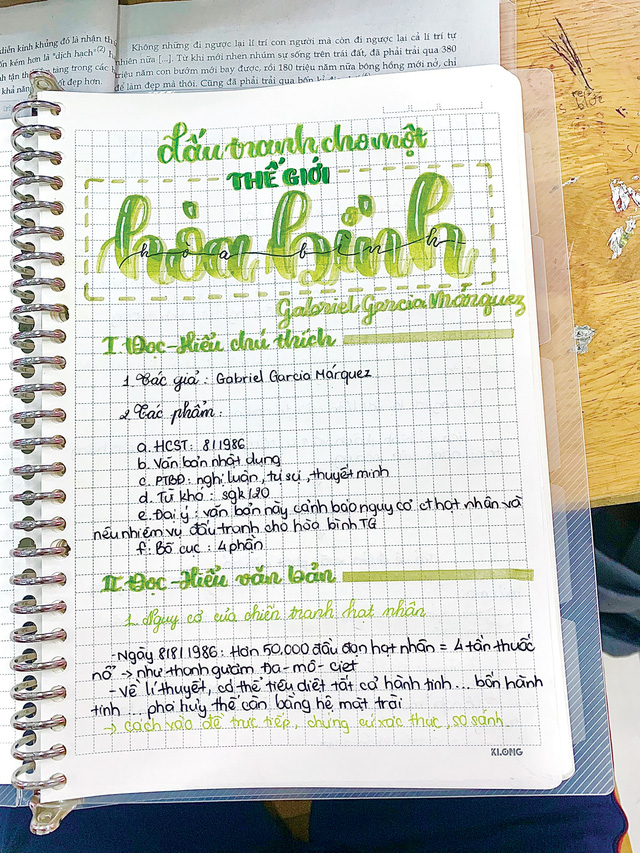 diễn kinh khủng đó là nhận th
ốn kém hơn là "dịch hạch"(2)
Không những đi ngược lại lí trí con người mà còn đi ngược lại cả lí trí tự
nhiên nữa [...]. Từ khi mới nhen nhúm sự sống trên trái đất, đã phải trải qua 380
triệu năm con bướm mới bay được, rồi 180 triệu năm nữa bông hồng mới nở, chỉ
để làm đẹp mà thôi. Cũng đã phải trải qua bốn kỉ
đấu tranh cho một
THẾ GIỚI
hòa bình
hòa bình
Gabriel Garcia Márquez
I. Đọc-Hiểu chú thích
1. Tác giả : Gabriel Garcia Márquez
2. Tác phẩm :
a. HCST: 8/1986
b. Văn bản nhật dụng
c. PTBĐ: nghị luận, tự sự, thuyết minh
d. Từ khó : sgk/20
e. Đại ý : văn bản này cảnh báo nguy cơ ct hạt nhân và
nêu nhiệm vụ đấu tranh cho hòa bình TG
f. Bố cục : 4 phần
II. Đọc-Hiểu văn bản
1. Nguy cơ của chiến tranh hạt nhân
-Ngày 8/8/1986: Hơn 50.000 đầu đạn hạt nhân = 4 tấn thuốc
nổ → như thanh gươm Đa-mô-clet
-Về lí thuyết, có thể tiêu diệt tất cả hành tinh... bốn hành
tinh... phá hủy thế cân bằng hệ mặt trời
→ cách vào đề trực tiếp, chứng cứ xác thực, so sánh
KLONG